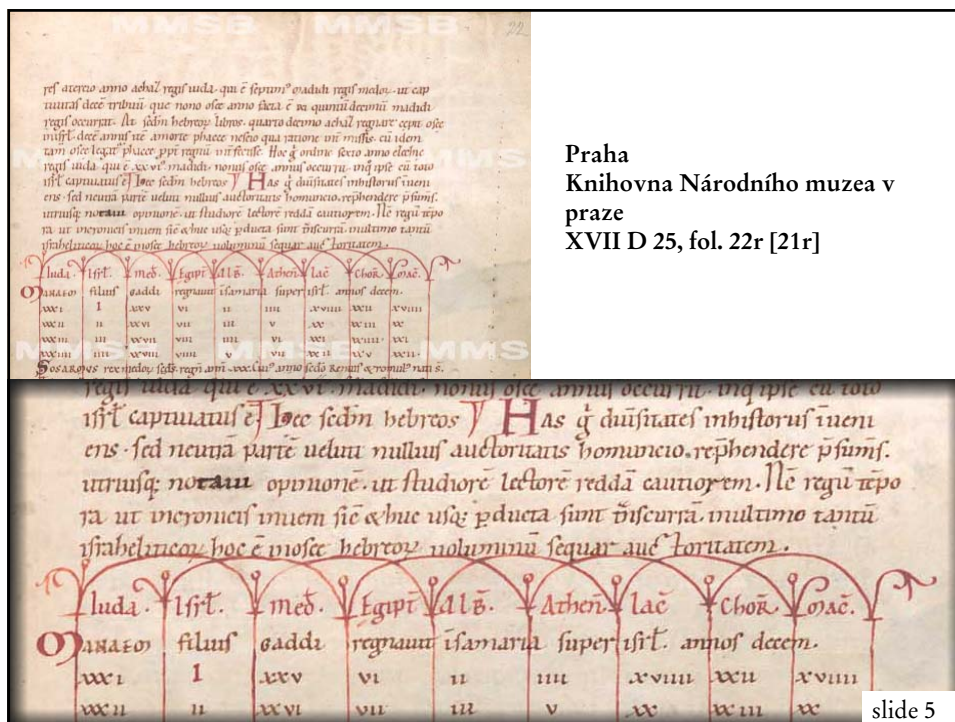 MMSB MMSB
22
res atercio anno achaz regis iuda. qui ē septim⁹ madidi regis medoꝝ. ut cap
tiuitas decē tribuū que nono osee anno facta ē
regis occurrat. At scd̄m hebreoꝝ libros. quarto decimo achaz regnare cepit osee
inisrl̄. decē annis itē amorte phacee nescio qua ratione missis. cū idem
tam osee legat͛ phacee regnū Hoc g̊ ordine sexto anno
regis iuda. qui ē xx vi. madidi. nonus osee annus occurrit. inq̄ ipse cū toto
isrl̄ captiuatus ē. Hec scd̄m hebreos HAs g̊ diūsitates inhistoriis īueni
ens. sed neutrā partē uelut nullius auctoritatis homuncio. rep̄hendere p̄sums̄.
utriusq; notaui opinionē. ut studiorē lectorē reddā cautiorem. Nē regū tēpo
ra ut inieronicis inuem̄ sic̄ & huc usq; p̱ducta sunt discurrā. inultimo tantū
israheliticoꝝ hoc ē inosee hebreoꝝ uoluminū sequar auctoritatem.
Iuda. Isrl̄. med̄. Egipt̄ alb̄. Athen̄. lac̄ Chor̄. mac̄.
MANAEM filius gaddi regnauit īsamaria super isrl̄. annos decem.
xxx i I xx v vi ii iiii x viiii xx ii x viiii
xxx ii ii xx vi vii iii v xx xx iii xx
xxx iii iii xx vii viii iiii vi xx
xxx iiii iiii xx viii viiii v vii xx ii xx
MMSB MMSB MMS
SOSARMUS rex medoꝝ scd̄s regn̄ ann̄. xxx. Cui⁹ anno scd̄o REMUS & romul⁹ nati s̄.
Praha
Knihovna Národního muzea v
praze
XVII D 25, fol. 22r [21r]
regis iuda qui ē xx vi. madidi. nonus osee annus occurrit. inq̄ ipse cū toto
isrl̄ captiuatus ē. Hec scd̄m hebreos HAs g̊ diūsitates inhistoriis īueni
ens. sed neutrā partē uelut nullius auctoritatis homuncio. rep̄hendere p̄sums̄.
utriusq; notaui opinionē. ut studiorē lectorē reddā cautiorem. Nē regū tēpo
ra ut inieronicis inuem̄ sic̄ & huc usq; p̱ducta sunt discurrā. inultimo tantū
israheliticoꝝ hoc ē inosee hebreoꝝ uoluminū sequar auctoritatem.
Iuda. Isrl̄. med̄. Egipt̄ alb̄. Athen̄. lac̄ Chor̄. mac̄.
MANAEM filius gaddi regnauit īsamaria super isrl̄. annos decem.
xxx i I xx v vi ii iiii x viiii xx ii x viiii
xxx ii ii xx vi vii iii v xx xx iii xx
slide 5